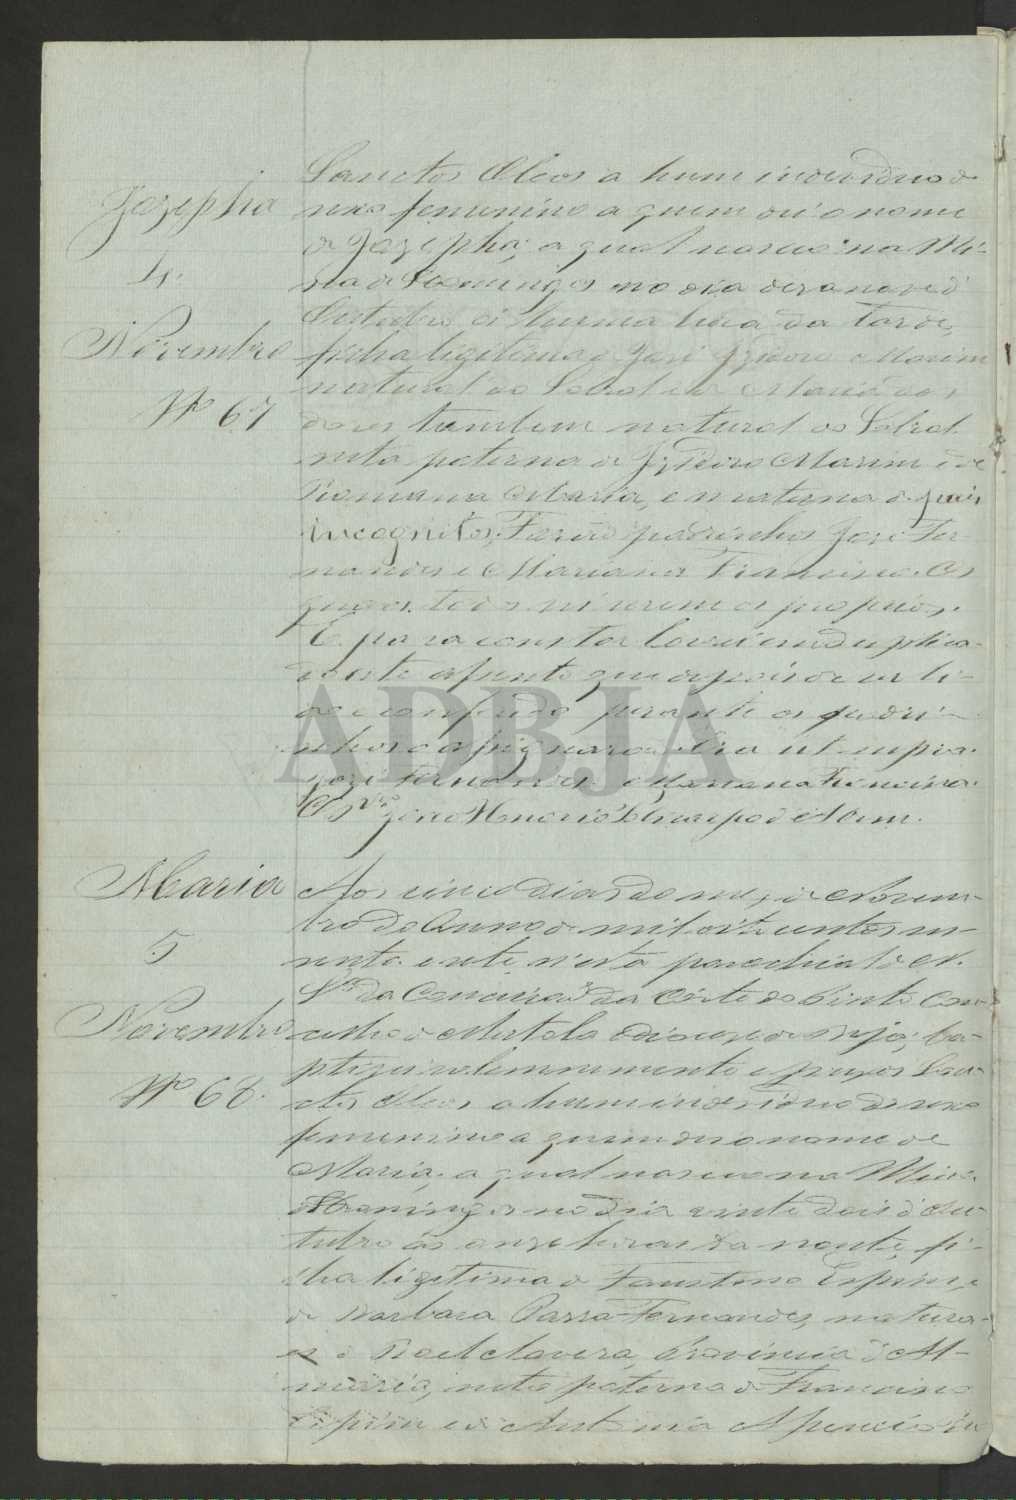 Jozepha
4
Novembro
Nº 67
Sanctos Oleos a hum individuo do
sexo femenino a quem dei o nome
de Jozepha; a qual nasceo na Mi-
na de S. Domingos no dia desanove d'
Outubro á huma hora da tarde,
filha ligitima de José Izidoro Marim
natural do Sobral e de Maria das
dores tambem natural do Sobral
neta paterna de Izidoro Marim e de
Romana Maria, e materna de pais
incognitos. Forão padrinhos José Fer-
nandes e Mariana Francisca. Os
quaes todos sei serem os proprios.
E para constar lavrei em duplica-
do este assento que depois de ser li-
do e conferido perante os padri-
nhos o assignarão. Era ut supra.
José Fernandes e Mariana Francisca.
O José
Maria
5
Novembro
Nº 68
Aos cinco dias do mez de Novem-
bro do anno de mil oito centos se-
senta e sete, n'esta parochial de N.
Sª da Conceição da Corte do Pinto Con-
celho de Mertola diocese de Beja; ba-
ptizei solemnemente e puz os San-
ctos Oleos a hum individuo do sexo
femenino a quem dei o nome de
Maria; a qual nasceo na Mina
de S. Domingos no dia vinte dois d'Ou-
tubro ás onze horas da noute, fi-
lha ligitima de Faustino Espim, e
de Barbara Parra Fernandes, natura-
es de Provincia d'Al-
meria, neta paterna de Francisco
Espim e de Antonia